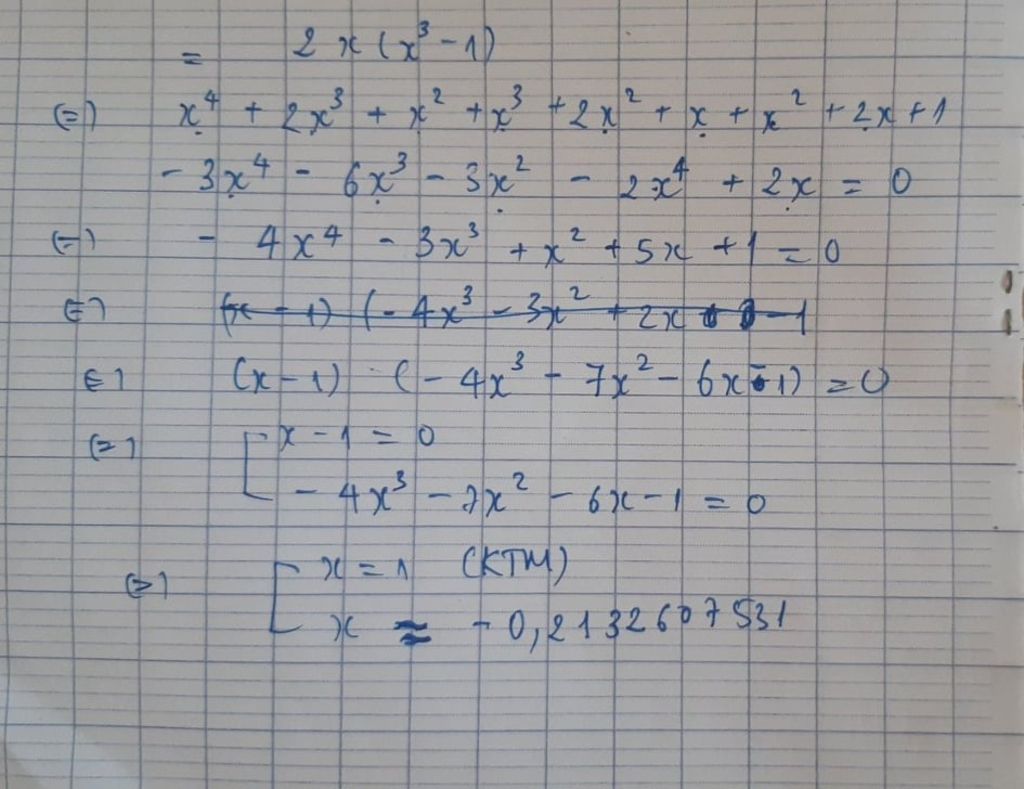 = 2x(x³ - 1)
(=) x⁴ + 2x³ + x² + x³ + 2x² + x + x² + 2x + 1
- 3x⁴ - 6x³ - 3x² - 2x⁴ + 2x = 0
(=) - 4x⁴ - 3x³ + x² + 5x + 1 = 0
(=) (x - 1) (- 4x³ - 3x² + 2x - 1
(=) (x - 1) (- 4x³ - 7x² - 6x - 1) = 0
(=) [ x - 1 = 0
- 4x³ - 7x² - 6x - 1 = 0
(=) [ x = 1 (KTM)
x ≈ - 0,2132607531